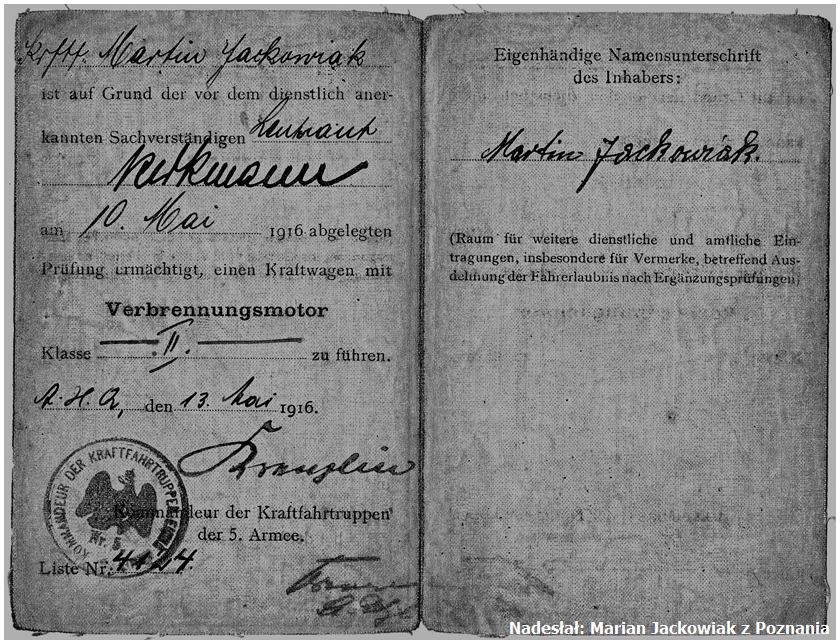 Krftf. Martin Jackowiak
ist auf Grund der vor dem dienstlich aner-
kannten Sachverständigen Leutnant
am 10. Mai 1916 abgelegten
Prüfung ermächtigt, einen Kraftwagen mit
Verbrennungsmotor
Klasse II. zu führen.
A.H.Q, den 13. Mai 1916.
KOMMANDEUR DER KRAFTFAHRTRUPPEN
Nr. 5
Kommandeur der Kraftfahrtruppen
der 5. Armee.
Liste Nr: 4124.
Eigenhändige Namensunterschrift
des Inhabers:
Martin Jackowiak.
(Raum für weitere dienstliche und amtliche Ein-
tragungen, insbesondere für Vermerke, betreffend Aus-
dehnung der Fahrerlaubnis nach Ergänzungsprüfungen)
Nadesłał: Marian Jackowiak z Poznania